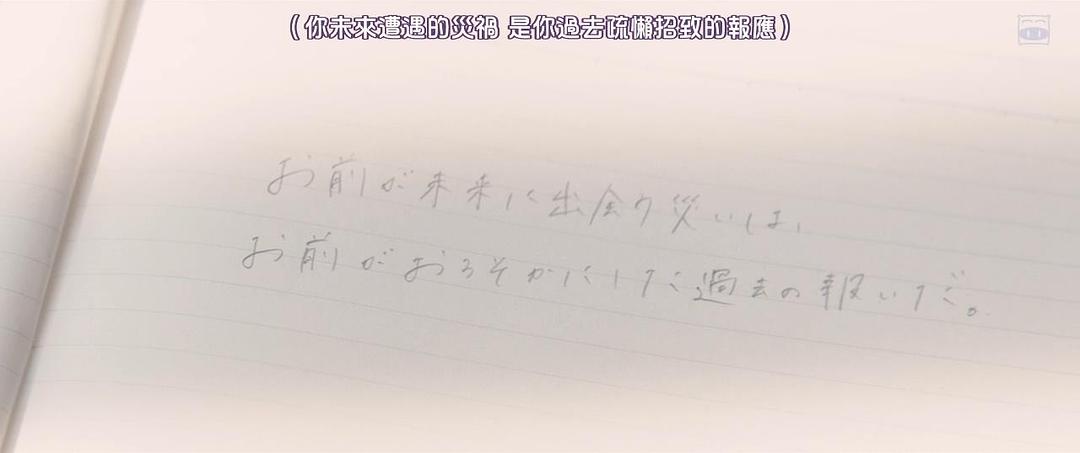 (你未來遭遇的災禍 是你過去疏懶招致的報應)
お前が未来に出会う災いは、
お前がおろそかにした過去の報いだ。